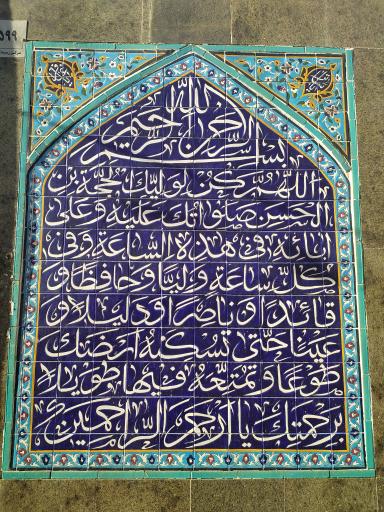 ۵۹۹
بسم الله الرحمن الرحیم
اللهم کن لولیک الحجة بن
الحسن صلواتک علیه و علی
ابائه فی هذه الساعة و فی
کل ساعة ولیا و حافظا و
قائدا و ناصرا و دلیلا و
عینا حتی تسکنه ارضک
طوعا و تمتعه فیها طویلا
برحمتک یا ارحم الراحمین